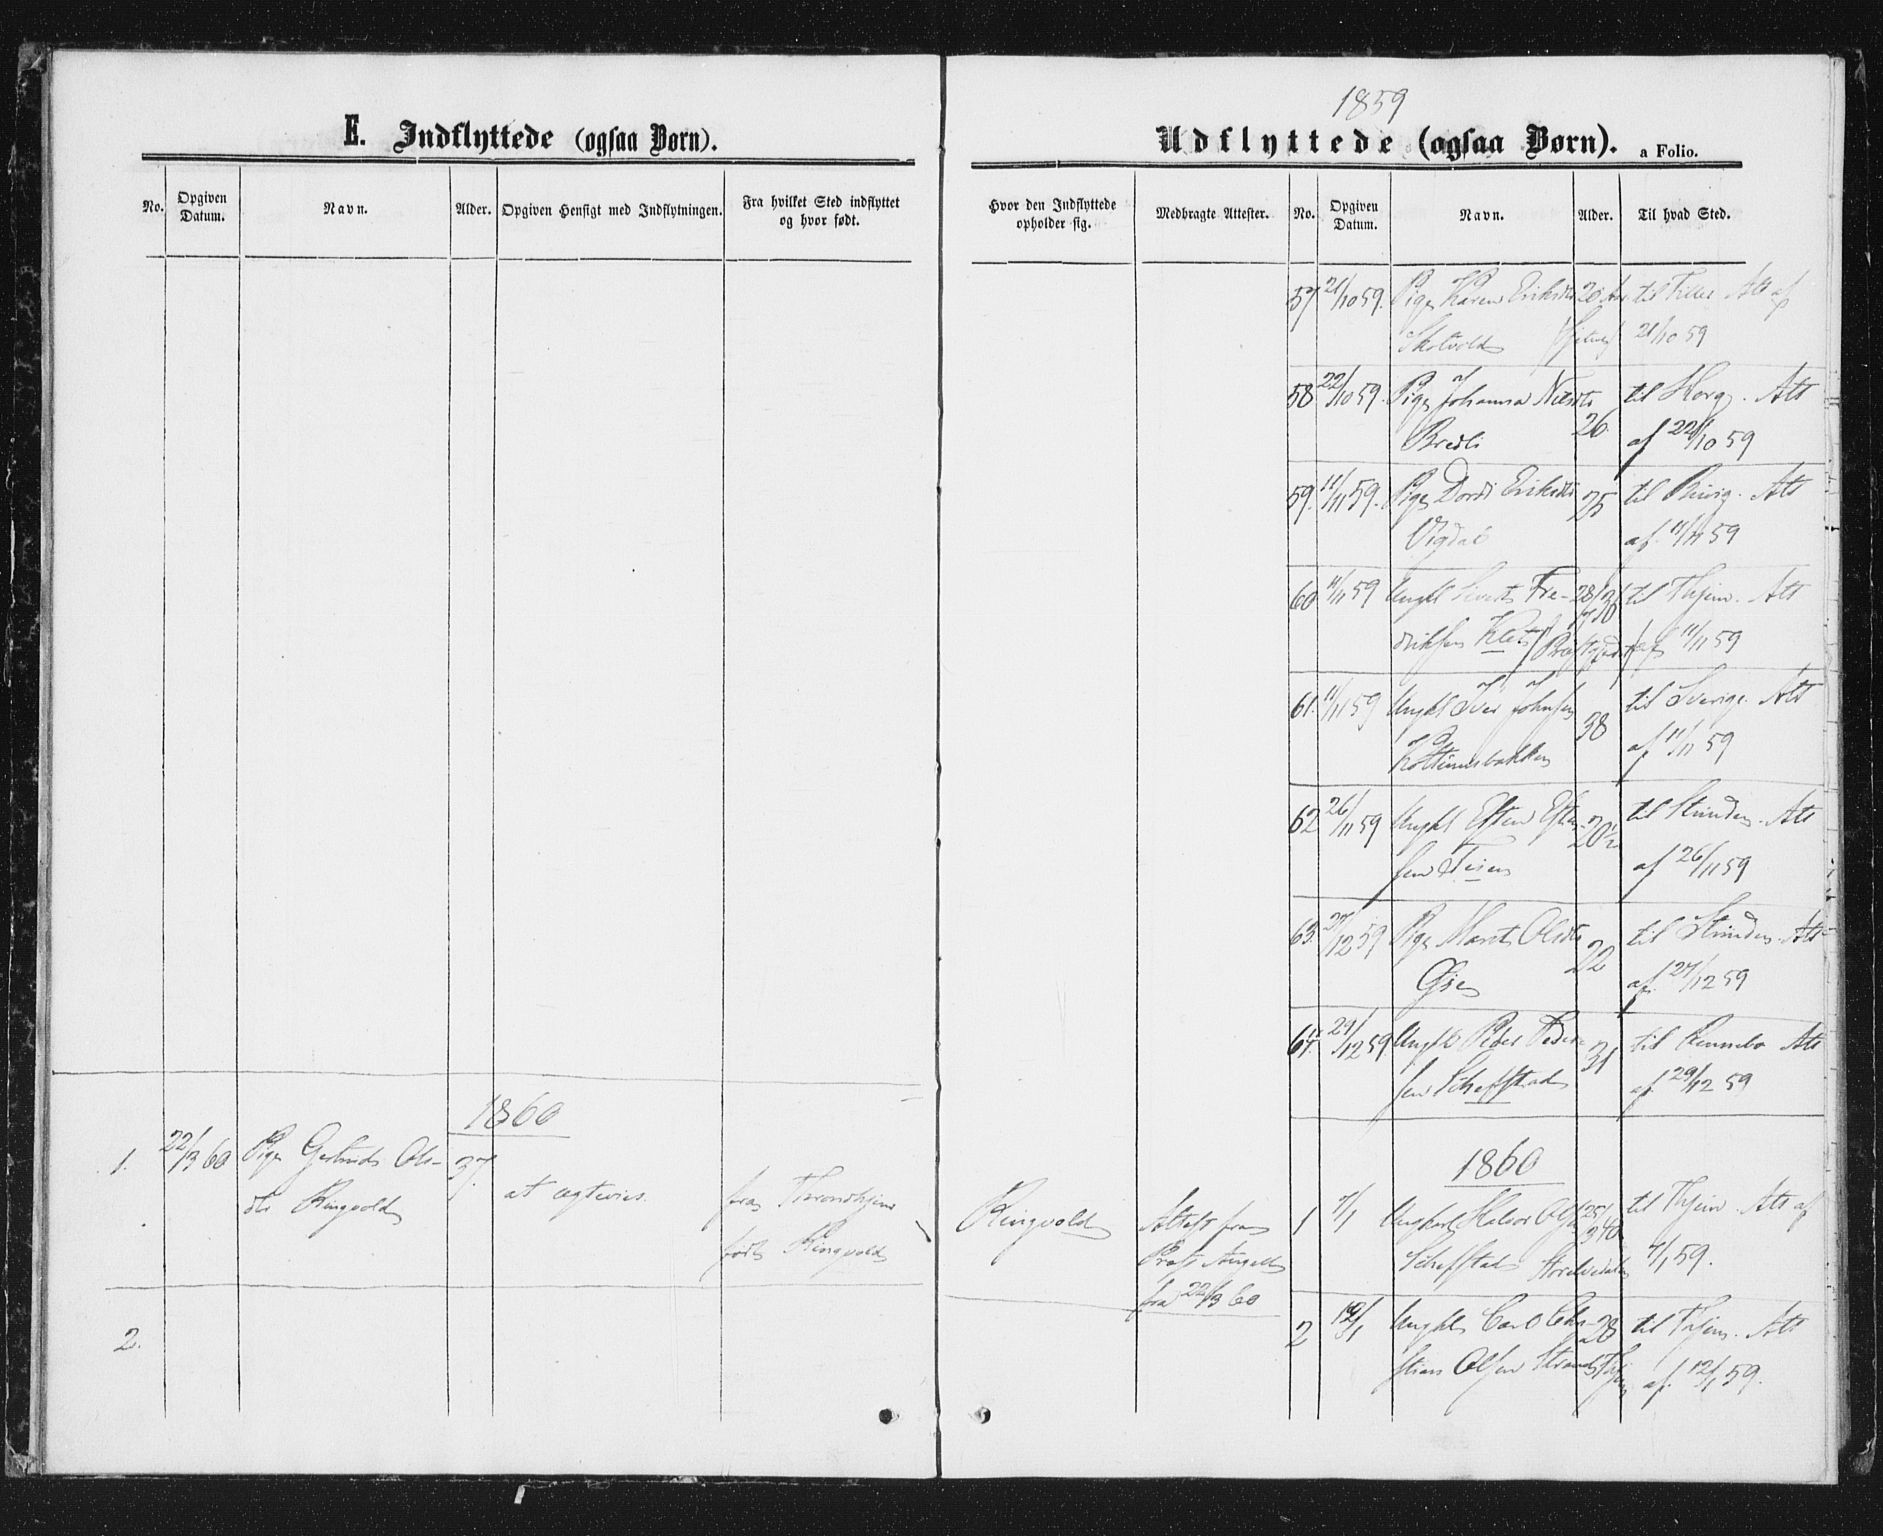 E. Indflyttede (ogsaa Børn).
No.
Opgiven Datum.
Navn.
Alder.
Opgiven Hensigt med Indflytningen.
Fra hvilket Sted indflyttet og hvor født.
1860
1. 22/3 60 Pige Gertrud Ols- 37. at ægtevies. fra Throndhjem
dtr Ringvold født Ringvold
2.
1859
Udflyttede (ogsaa Børn).
a Folio.
Hvor den Indflyttede opholder sig.
Medbragte Attester.
No.
Opgiven Datum.
Navn.
Alder.
Til hvad Sted.
Ringvold Attest fra
Præst Angell
fra 22/3 60
57 21/10 59. Pige Karen Eriksdtr 20 Aar til Tiller Att af
Skolvold 21/10 59
58 22/10 59. Pige Johanna Nilsdtr 26. til Horg. Att
Bredli af 22/10 59
59. 11/11 59. Pige Dordi Eriksdtr 25 til Att
Vigdal af. 11/11 59
60 11/11 59 Ungkl Sivert Fre- 28 til Thjem. Att
driksen Klet af 11/11 59
61. 11/11 59 Ungkl Iver Johnsen 38 til Sverige. Att
af 11/11 59
62 26/11 59 Ungkl Esten Esten- 20½ til Strinden. Att
sen af 26/11 59
63. 27/12 59 Pige Marit Olsdtr 22 til Strinden. Att
af. 27/12 59
64. 29/12 59 Ungkl Peder Peder- 31 til Rennebo Att
sen af 29/12 59
1860
1 7/1 Ungkarl Halvor Olsen til Thjem. Att af
7/1 59.
2 12/1 Ungkl Carl Chri- 28 til Thjem. Att
stian Olsen Strand af. 12/1 59.